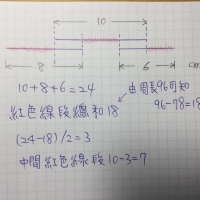 10
8
6
cm
10+8+6=24
由周長96可知
紅色線段總和18
96-78=18
(24-18)/2=3
中間紅色線段10-3=7